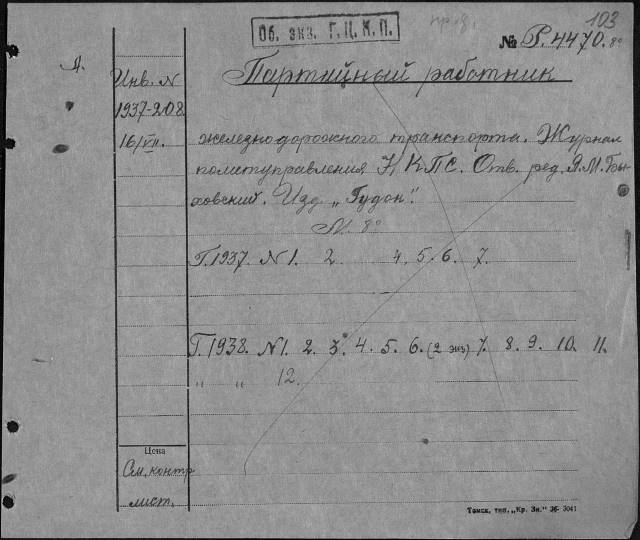 103
Об. экз. Г.Ц.К.П.
№ Р.4470. 8°
А.
Инв. N
1937-208
16/VII.
Партийный работник
железнодорожного транспорта. Журнал
политуправления НКПС. Отв. ред. Я.М. Бы-
ховский. Изд. „Гудок".
М. 8°
Г. 1937. N 1. 2 4. 5. 6. 7.
Г. 1938. N 1. 2. 3. 4. 5. 6. (2 экз) 7. 8. 9. 10. 11.
„ „ 12.
Цена
См. контр
лист.
Томск, тип. „Кр. Зн." 36- 3041